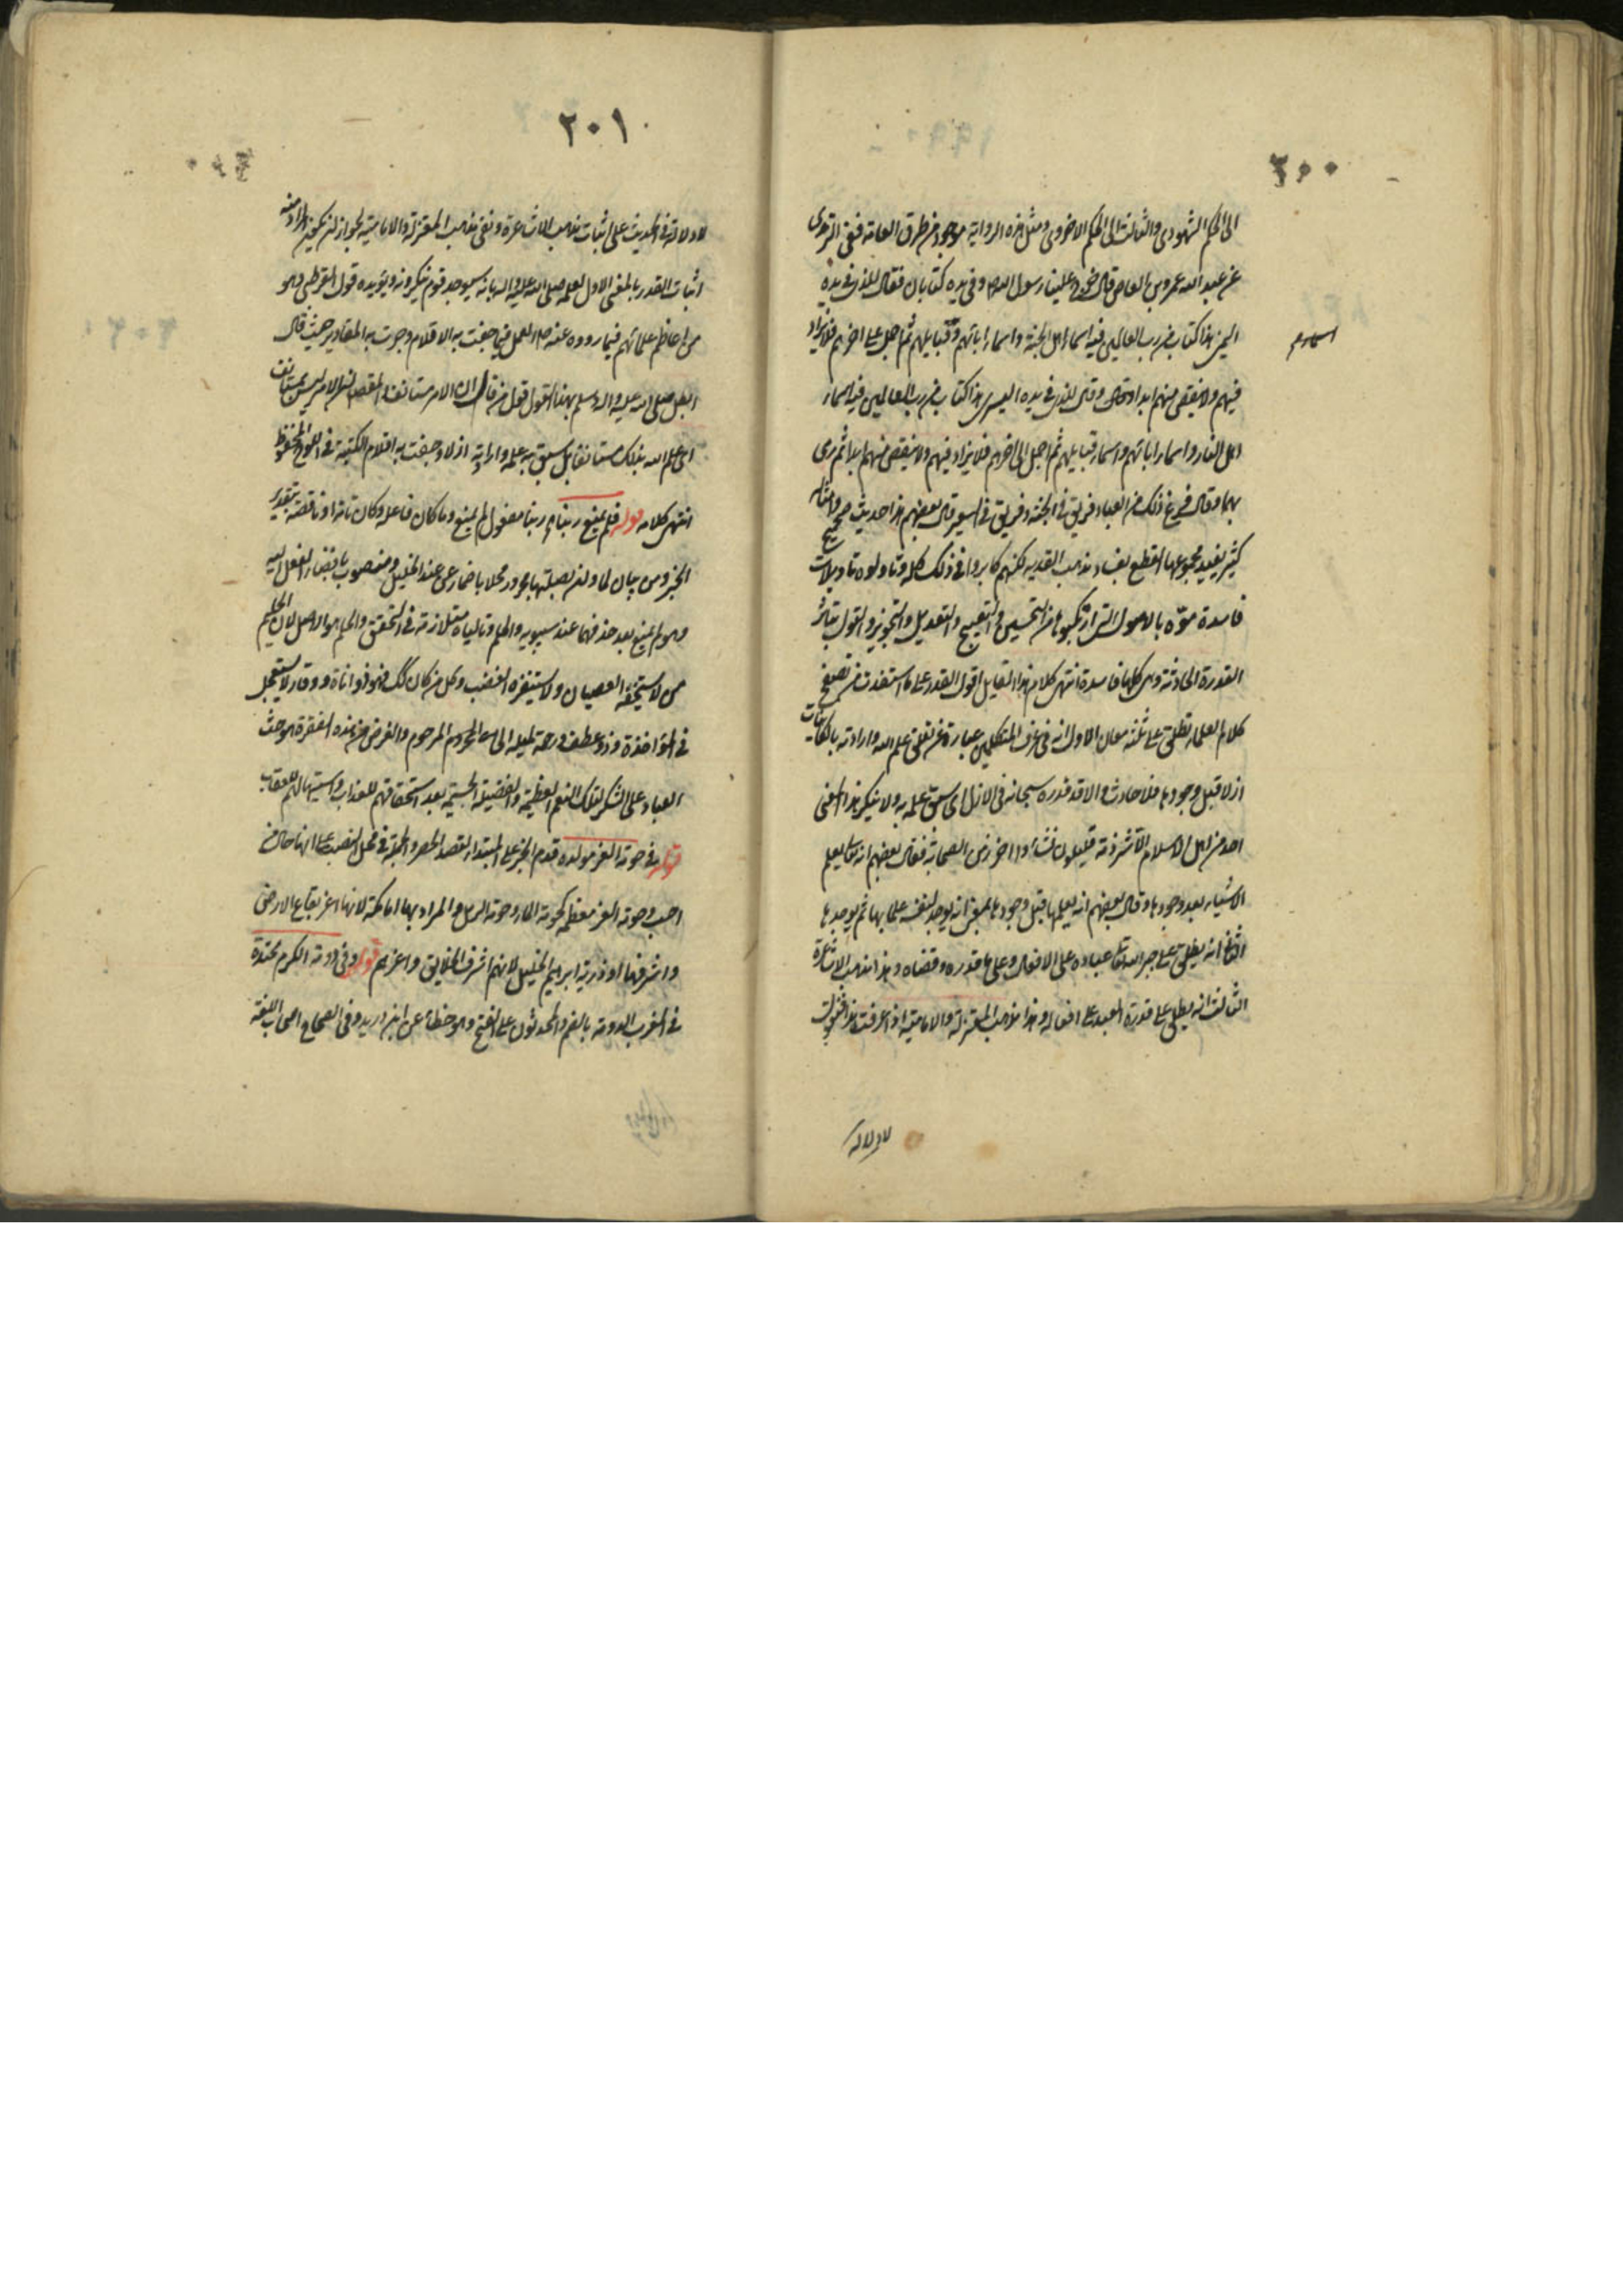 ٢٠٠
الى الحكم الشهودى والثالث الى الحكم الاخروى ومثل هذه الرواية موجود من طرق العامة فعن الترمذى
عن عبد الله عمرو بن العاص قال خرج علينا رسول الله ص وفى يده كتابان فقال للذى فى يده
اليمنى هذا كتاب من رب العالمين فيه اسماء اهل الجنة واسماء ابائهم وقبايلهم ثم اجمل على اخرهم فلا يزاد
اسماءهم
فيهم ولا ينقص منهم ابدا وقال للذى فى يده اليسرى هذا كتاب من رب العالمين فيه اسماء
اهل النار واسماء ابائهم واسماء قبايلهم ثم اجمل الى اخرهم فلا يزاد فيهم ولا ينقص منهم ابدا ثم رمى
بهما وقال فرغ ذلك من العباد فريق فى الجنة وفريق فى السعير قال بعضهم هذا حديث صحيح وامثاله
كثير يفيد مجموعها القطع بفساد مذهب القدرية لكنهم كابروا فى ذلك كله وتاولوه تاويلات
فاسدة مموه بالاصول التى ارتكبوها من التحسين والتقبيح والتعديل والتجويز والقول بتاثير
القدرة الحادثة وهى كلها فاسدة انتهى كلام هذا القايل اقول القدر على ما استفدت من تصفح
كلام العلماء يطلق على ثلثة معان الاول انه فى عرف المتكلمين عبارة عن تعلق علم الله وارادته بالكاينات
ازلا قبل وجودها فلا حادث الا قد قدره سبحانه فى الازل اى سبق علمه به ولا ينكر هذا المعنى
احد من اهل الاسلام الا شرذمة قليلون نشاوا اخر زمن الصحابة فقال بعضهم انه تعالى يعلم
الاشياء بعد وجودها وقال بعضهم انه يعلمها قبل وجودها بمعنى انه يوجد لنفسه علما بها ثم يوجدها
الثانى انه يطلق على جبر الله تعالى عباده على الافعال وعلى ما قدره وقضاه وهذا مذهب الاشاعرة
الثالث انه يطلق على قدرة العبد على افعاله وهذا مذهب المعتزلة والامامية اذا عرفت هذا فنقول
لا دلالة
٢٠١
لا دلالة فى الحديث على اثبات مذهب الاشاعرة ونفى مذهب المعتزلة والامامية لجواز ان يكون المراد منه
اثبات القدر بالمعنى الاول لعلمه صلى الله عليه واله بانه سيوجد قوم ينكرونه ويؤيده قول القرطبى وهو
من اعاظم علمائهم فيما رووه عنه ص العمل فيما جفت به الاقلام وجرت به المقادير حيث قال
ابطل صلى الله عليه واله وسلم بهذا القول قول من قال ان الامر مستانف المقصد ان الامر ليس بمستانف
اى علم الله بذلك مستانفا بل سبق به علمه وارادته ازلا وجفت به اقلام الكتبة فى اللوح المحفوظ
انتهى كلامه قوله فلم يمنع ربنا ربنا مفعول لم يمنع وما كان فاعله وكان تامة او ناقصة بتقدير
الخبر ومن بيان لما وان بصلتها مجرور محلا باضمار عن عند الخليل ومنصوب باقتضاء الفعل اليه
وهو لم يمنع بعد حذفها عند سيبويه والحلم وتالياه متلازمة فى التحقق والحلم هو الاصل لان الحليم
من لا يستخفه العصيان ولا يستفزه الغضب وكل من كان كذلك فهو ذو اناة ووقار لا يستعجل
فى المؤاخذة وذو عطف ورحمة لميله الى المرحوم والغرض من هذه الفقرة هو حث
العباد على الشكر لتلك النعم العظيمة والفضيلة الجسيمة بعد استحقاقهم للعذاب واستيهالهم للعقاب
قوله فى حومة العز مولده قدم الخبر على المبتدا لقصد الحصر والجملة فى محل النصب على انها حال من
احب وحومة العز معظمه كحومة الماء وحومة الرمل والمراد بها اما مكة لانها اعز بقاع الارض
واشرفها او ذرية ابراهيم الخليل لانهم اشرف الخلايق واعزهم قوله وفى دومة الكرم محتده
فى المغرب الدومة بالضم والمحدثون على الفتح وهو خطا عن ابن دريد وفى الصحاح اصحاب اللغة